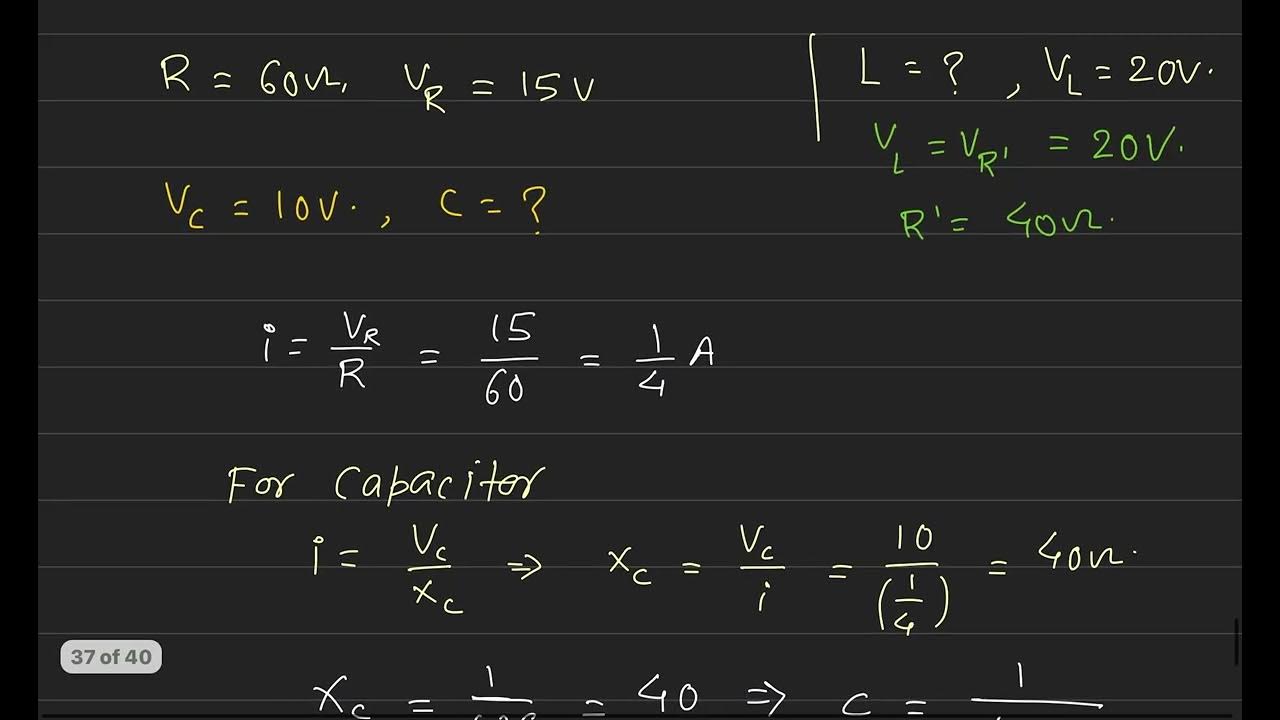 R = 60Ω, V_R = 15V
L = ? , V_L = 20V.
V_L = V_R' = 20V.
V_C = 10V. , C = ?
R' = 40Ω.
i = V_R / R = 15 / 60 = 1/4 A
For Capacitor
i = V_C / X_C ⇒ X_C = V_C / i = 10 / (1/4) = 40Ω.
37 of 40
X_C = 1 / = 40 ⇒ C = 1 /